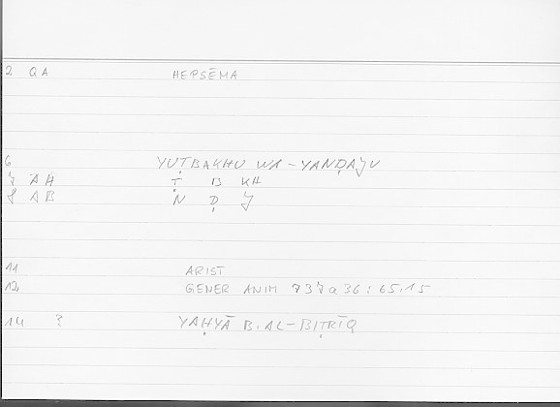 2 QA HEPSĒMA
6 YUṬBAKHU WA-YANḌAJU
7 AH Ṭ B KH
8 AB N Ḍ J
11 ARIST
12 GENER ANIM 737a36 : 65.15
14 ? YAḤYĀ B. AL-BIṬRĪQ